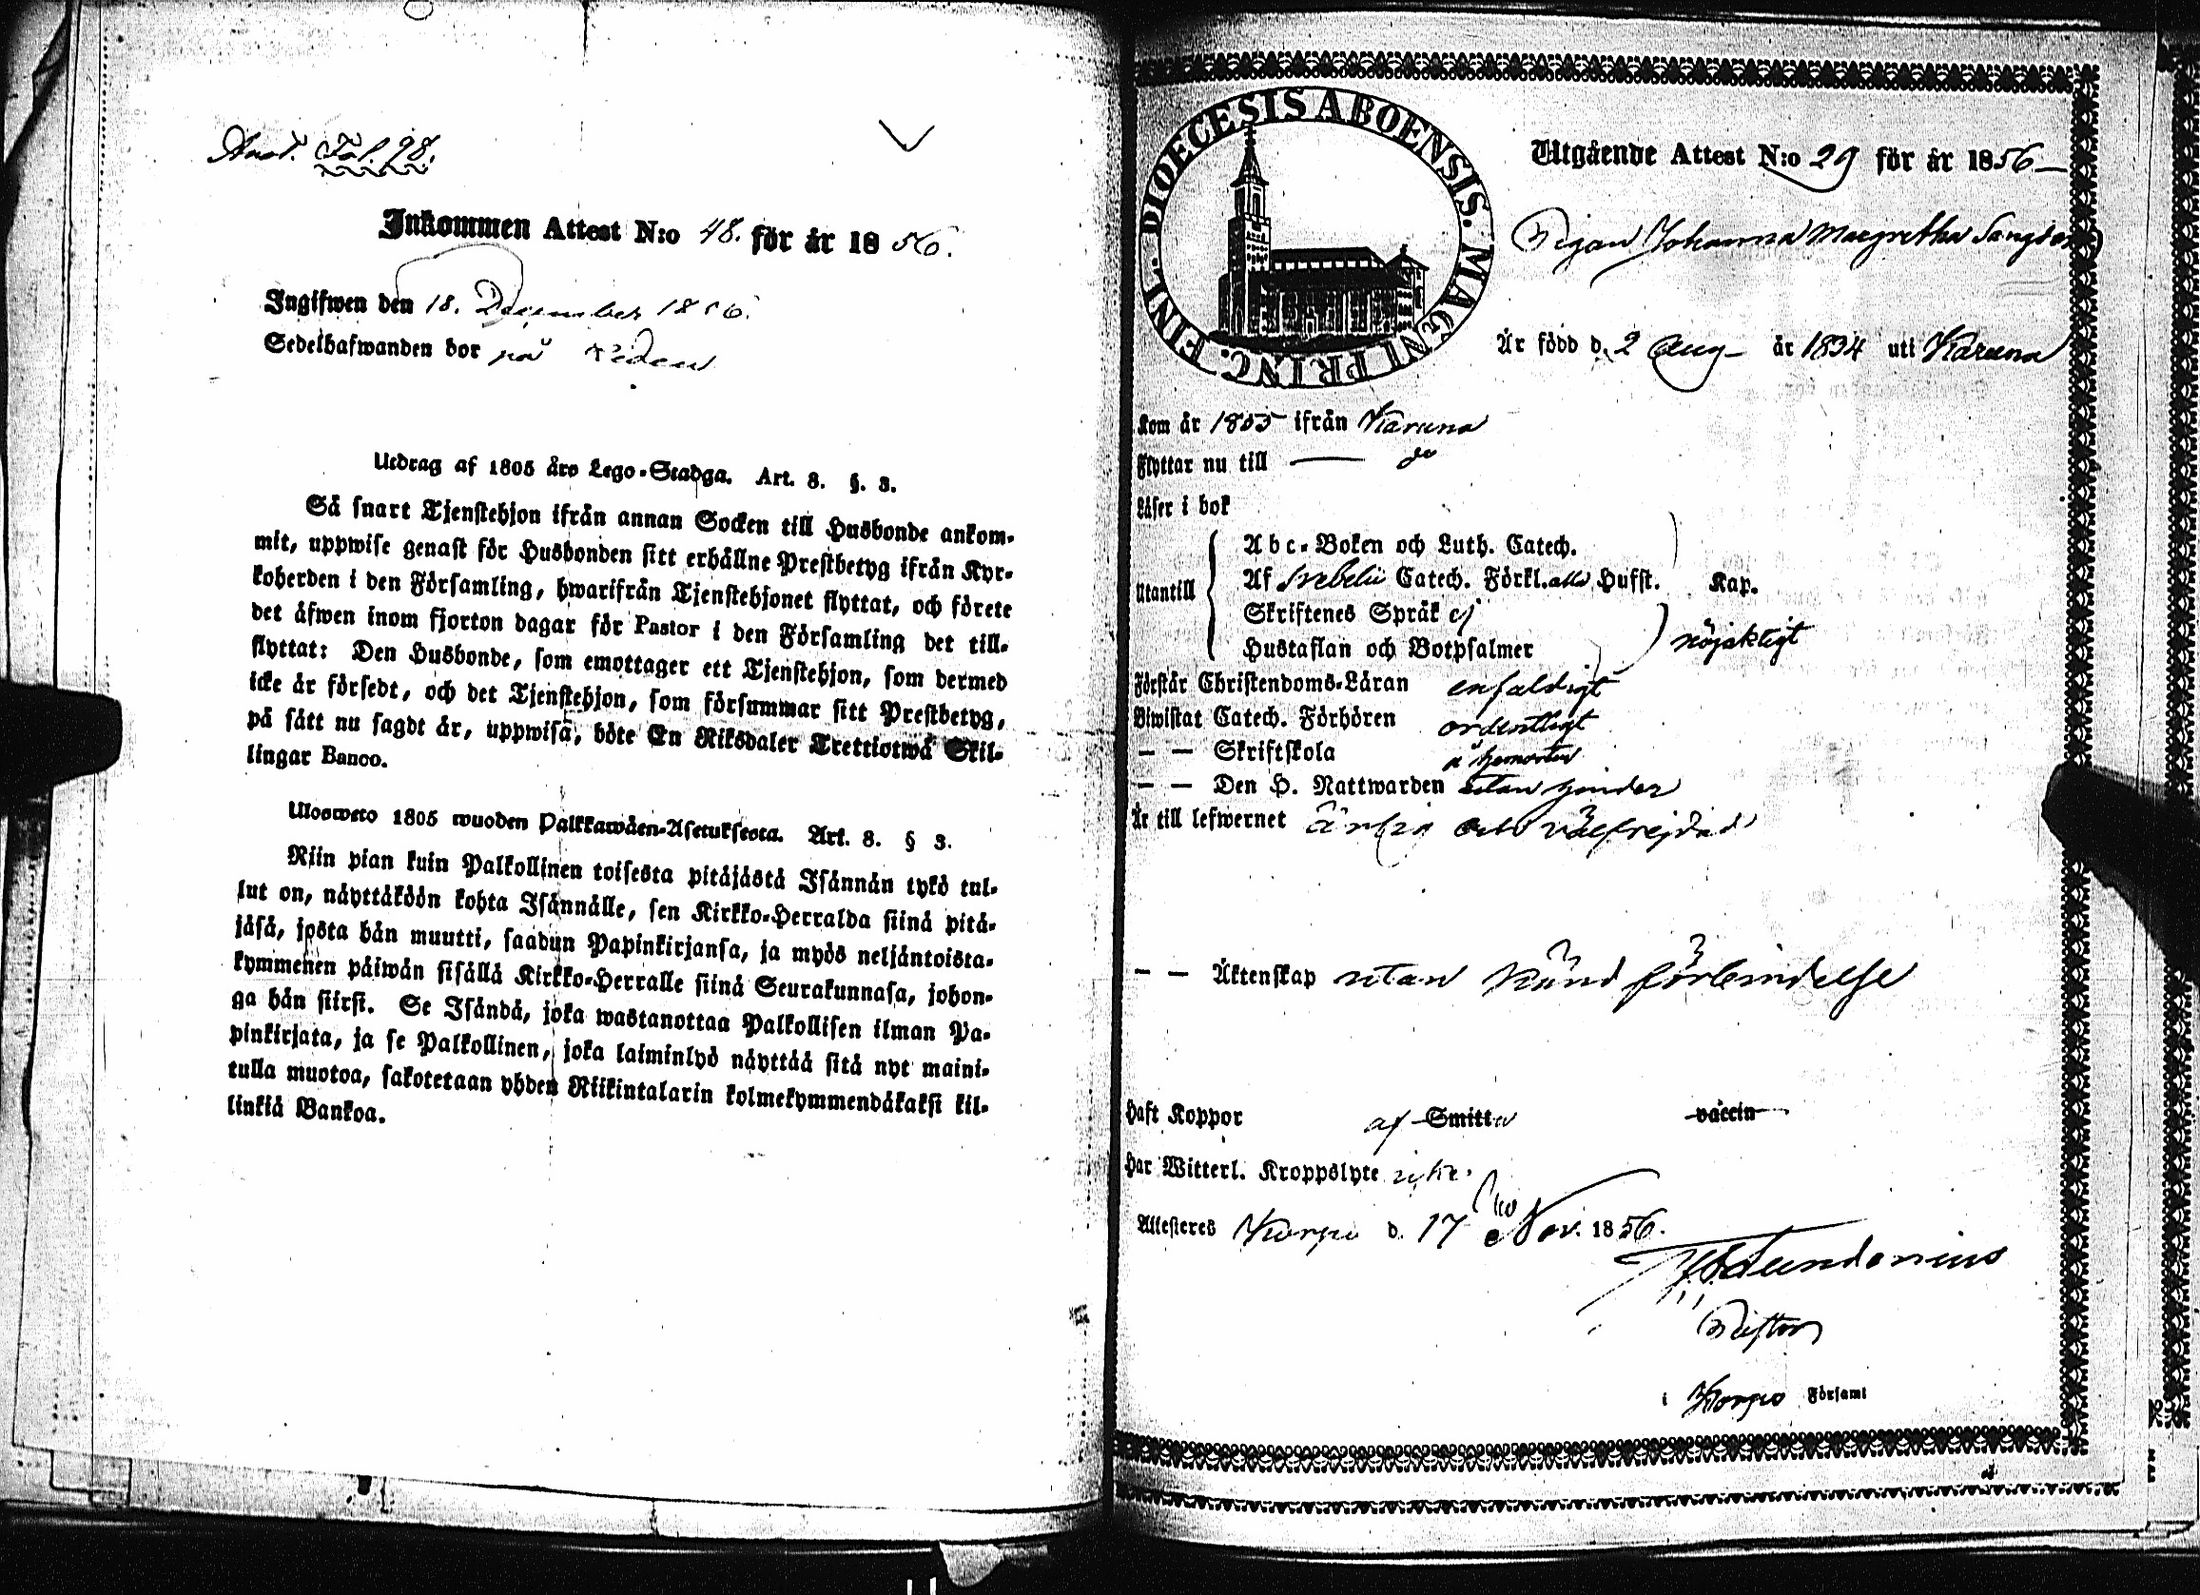 Anot. Fol. 98.
Inkommen Attest N:o 48. för år 1856.
Ingifwen den 18. December 1856.
Sedelhafwanden bor på
Utdrag af 1805 års Lego-Stadga. Art. 8. §. 3.
Så snart Tjenstehjon ifrån annan Socken till Husbonde ankom-
mit, uppwise genast för Husbonden sitt erhållne Prestbetyg ifrån Kyr-
koherden i den Församling, hwarifrån Tjenstehjonet flyttat, och förete
det äfwen inom fjorton dagar för Pastor i den Församling det till-
flyttat: Den Husbonde, som emottager ett Tjenstehjon, som dermed
icke är försedt, och det Tjenstehjon, som försummar sitt Prestbetyg,
på sätt nu sagdt är, uppwisa, böte En Riksdaler Trettiotwå Skil-
lingar Banco.
Ulosweto 1805 wuoden Palkkawäen-Asetuksesta. Art. 8. § 3.
Niin pian kuin Palkollinen toisesta pitäjästä Isännän tykö tul-
lut on, näyttäköön kohta Isännälle, sen Kirkko-Herralda siinä pitä-
jäsä, josta hän muutti, saadun Papinkirjansa, ja myös neljäntoista-
kymmenen päiwän sisällä Kirkko-Herralle siinä Seurakunnasa, johon-
ga hän siirsi. Se Isändä, joka wastanottaa Palkollisen ilman Pa-
pinkirjata, ja se Palkollinen, joka laiminlyö näyttää sitä nyt maini-
tulla muotoa, sakotetaan yhden Riikintalarin kolmekymmendäkaksi kil-
linkiä Bankoa.
DIOECESIS ABOENSIS. MAGNI PRINC. FINL.
Utgående Attest N:o 29 för år 1856
Pigan Johanna Margretha
Är född d. 2 Aug år 1834 uti Karuna
Kom år 1855 ifrån Karuna
Flyttar nu till — do
Läser i bok
Utantill
Abc-Boken och Luth. Catech.
Af Svebelii Catech. Förkl. alla Hufst. Kap.
Skriftenes Språk ej
Hustaflan och Botpsalmer nöjaktigt
Förstår Christendoms-Läran enfaldigt
Biwistat Catech. Förhören ordentligt
— — Skriftskola
— — Den H. Nattwarden utan hinder
Är till lefwernet ärlig och välfrejdad
— — Äktenskap utan känd förbindelse
Haft Koppor af Smitta vaccin
Har Witterl. Kroppslyte icke
Attesteres Korpo d. 17 Nov. 1856.
Pastor
i Korpo Församl